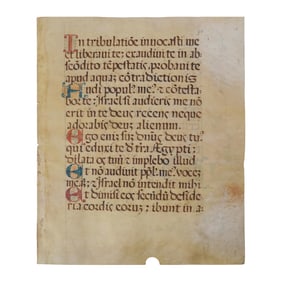 In tribulatiōe invocasti me
et liberavi te: exaudivi te in ab
scōdito tēpestatis, probavi te
apud aquā cōtradictionis
Audi popul' me', et cōtesta
bor te: Israel si audieris me nō
erit in te deus recens neque
adorabis deū alienum.
Ego eni: sū dn̄us deus tu'
qui eduxi te d' tra Ægypti:
dilata os tuū: et implebo illud
Et nō audivit pp̄l. me'. vocez
meā: et Israel nō intendit mihi
Et dimisi eos secūdū deside
ria cordis eoruz: ibunt in a: